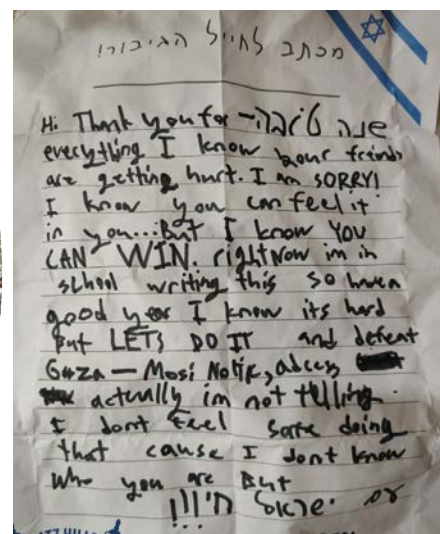 מכתב לחייל הגיבור!
שנה טובה- Hi Thank you for
everything I know your friends
are getting hurt. I am SORRY!
I know you can feel it
in you...But I know YOU
CAN WIN. right Now im in
school writing this so have a
good year I know its hard
But LETS DO IT and defeat
Gaza — Mosi Notik, adress
actually im not telling.
I dont feel safe doing
that cause I dont know
Who you are But
עם ישראל חי!!!